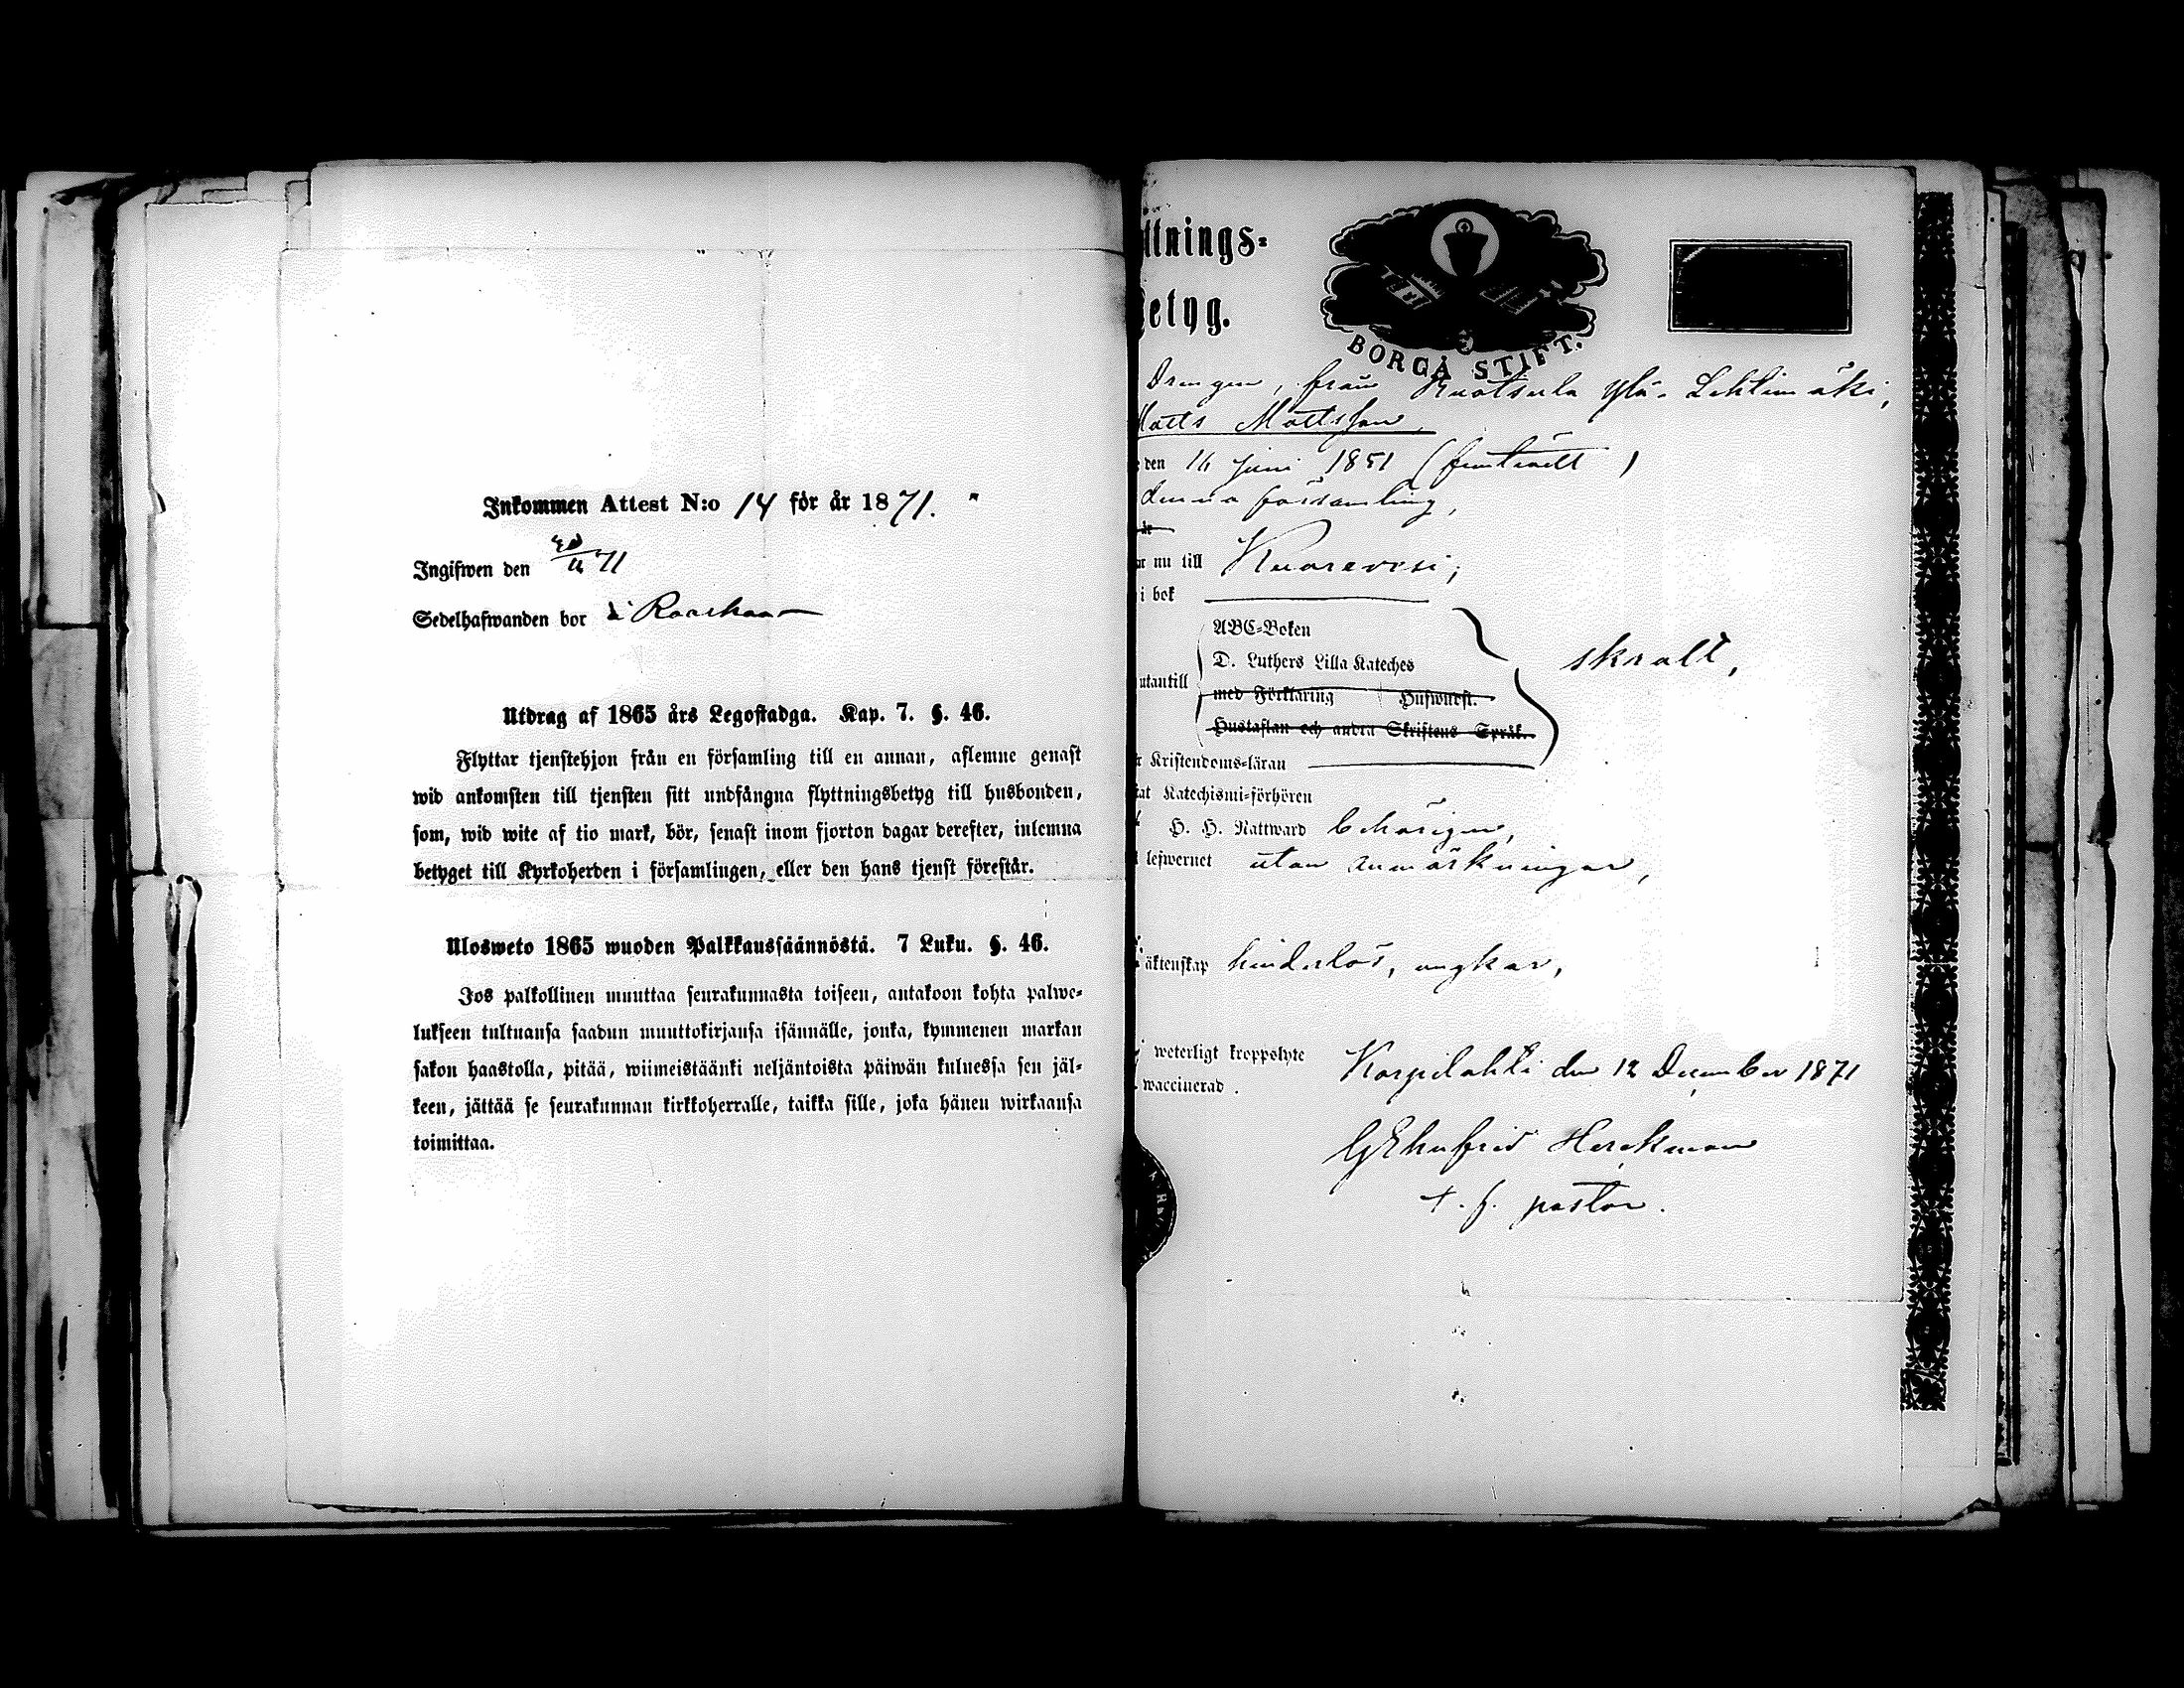 Inkommen Attest N:o 14 för år 1871.
Ingifwen den 71
Sedelhafwanden bor i
Utdrag af 1865 års Legostadga. Kap. 7. §. 46.
Flyttar tjenstehjon från en församling till en annan, aflemne genast
wid ankomsten till tjensten sitt undfångna flyttningsbetyg till husbonden,
som, wid wite af tio mark, bör, senast inom fjorton dagar derefter, inlemna
betyget till Kyrkoherden i församlingen, eller den hans tjenst förestår.
Ulosweto 1865 wuoden Palkkaussäännöstä. 7 Luku. §. 46.
Jos palkollinen muuttaa seurakunnasta toiseen, antakoon kohta palwe-
lukseen tultuansa saadun muuttokirjansa isännälle, jonka, kymmenen markan
sakon haastolla, pitää, wiimeistäänki neljäntoista päiwän kuluessa sen jäl-
keen, jättää se seurakunnan kirkkoherralle, taikka sille, joka hänen wirkaansa
toimittaa.
ttnings-
Betyg.
BORGÅ STIFT.
Drengen, från Ruotsula Ylä-Lehtimäki,
Matts Mattsson,
den 16 Juni 1851
denna församling,
nu till Kuorevesi,
i bok
ABC-Boken
D. Luthers Lilla Kateches
utantill
med Förklaring Hufwudst.
Hustaflan och andra Skriftens Språk.
skralt,
Kristendoms-läran
Katechismi-förhören
H. H. Nattward behörigen,
lefwernet utan anmärkningar,
äktenskap hinderlös, ungkar,
weterligt kroppslyte
waccinerad.
Korpilahti den 12 December 1871
Herckman
t. f. pastor.